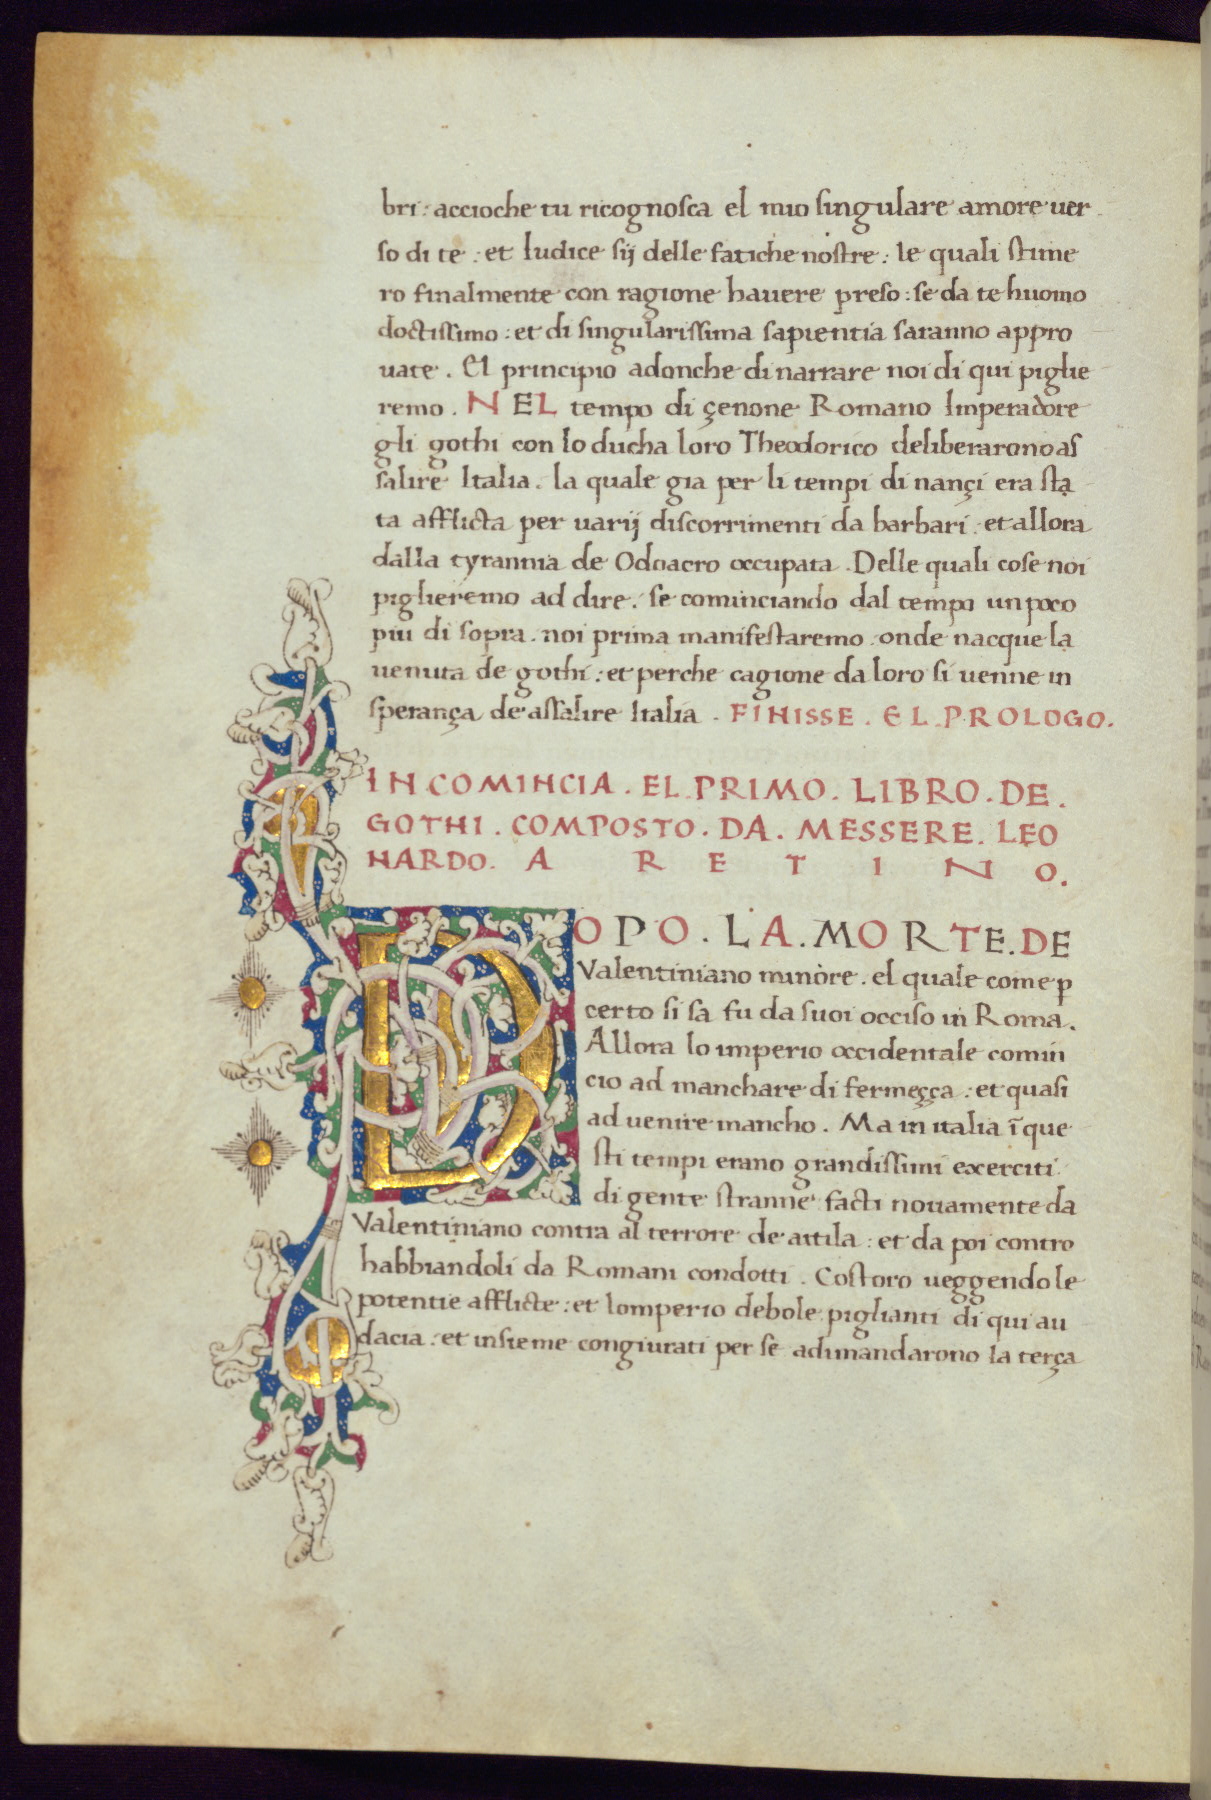 bri : accioche tu ricognosca el mio singulare amore uer
so di te : et Iudice sij delle fatiche nostre : le quali stime
ro finalmente con ragione hauere preso : se da te huomo
doctissimo : et di singularissima sapientia saranno appro
uate . El principio adonche di narrare noi di qui piglie
remo . NEL tempo di çenone Romano Imperadore
gli gothi con lo ducha loro Theodorico deliberarono as
salire Italia . la quale gia per li tempi di nançi era sta
ta afflicta per uarij discorrimenti da barbari : et allora
dalla tyrannia de Odoacro occupata . Delle quali cose noi
piglieremo ad dire . se cominciando dal tempo un poco
piu di sopra . noi prima manifestaremo . onde nacque la
uenuta de gothi : et perche cagione da loro si uenne in
sperança de assalire Italia . FINISSE . EL . PROLOGO .
INCOMINCIA . EL . PRIMO . LIBRO . DE .
GOTHI . COMPOSTO . DA . MESSERE . LEO
NARDO . A R E T I N O .
DOPO . LA . MORTE . DE
Valentiniano minore . el quale come ꝑ
certo si sa fu da suoi occiso in Roma .
Allora lo imperio occidentale comin
cio ad manchare di fermeçça : et quasi
ad uenire mancho . Ma in italia ī que
sti tempi erano grandissimi exerciti
di gente stranne facti nouamente da
Valentiniano contra al terrore de attila : et da poi contro
habbiandoli da Romani condotti . Costoro ueggendo le
potentie afflicte : et lomperio debole piglianti di qui au
dacia : et insieme congiurati per se adimandarono la terça